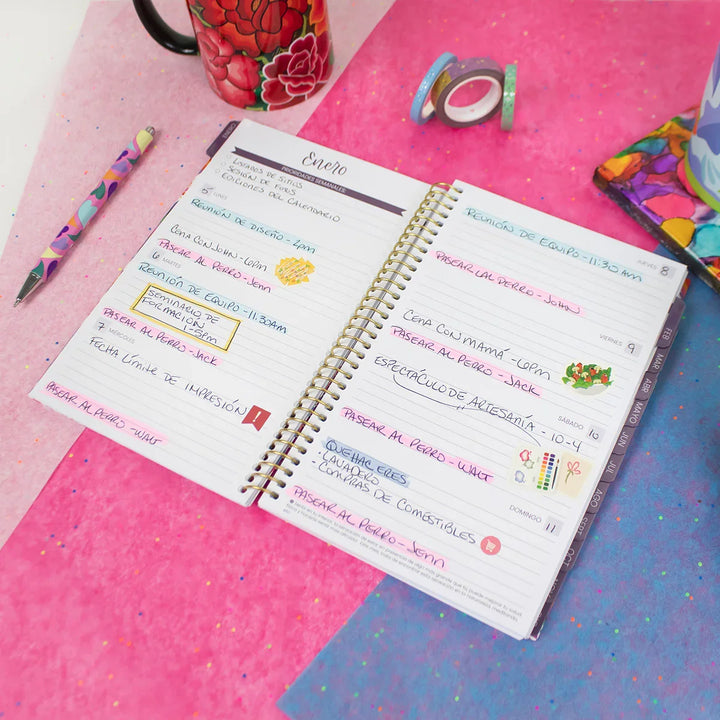 Enero
PRIORIDADES SEMANALES
LISTADOS DE SITIOS
SESIÓN DE FOTOS
EDICIONES DEL CALENDARIO
5 LUNES
REUNIÓN DE DISEÑO - 2pm
CENA CON JOHN - 6pm
PASEAR AL PERRO - Jenn
6 MARTES
REUNIÓN DE EQUIPO - 11:30AM
SEMINARIO DE
FORMACIÓN
1-5pm
PASEAR AL PERRO - JACK
7 MIÉRCOLES
FECHA LÍMITE DE IMPRESIÓN
!
PASEAR AL PERRO - WALT
JUEVES 8
REUNIÓN DE EQUIPO - 11:30AM
PASEAR AL PERRO - JOHN
VIERNES 9
CENA CON MAMÁ - 6pm
PASEAR AL PERRO - JACK
SÁBADO 10
ESPECTÁCULO DE ARTESANÍA - 10-4
PASEAR AL PERRO - WALT
DOMINGO 11
QUEHACERES
· LAVADERO
· COMPRAS DE COMESTIBLES
PASEAR AL PERRO - Jenn
FEB
MAR
ABR
MAYO
JUN
JUL
AGO
SEPT
OCT